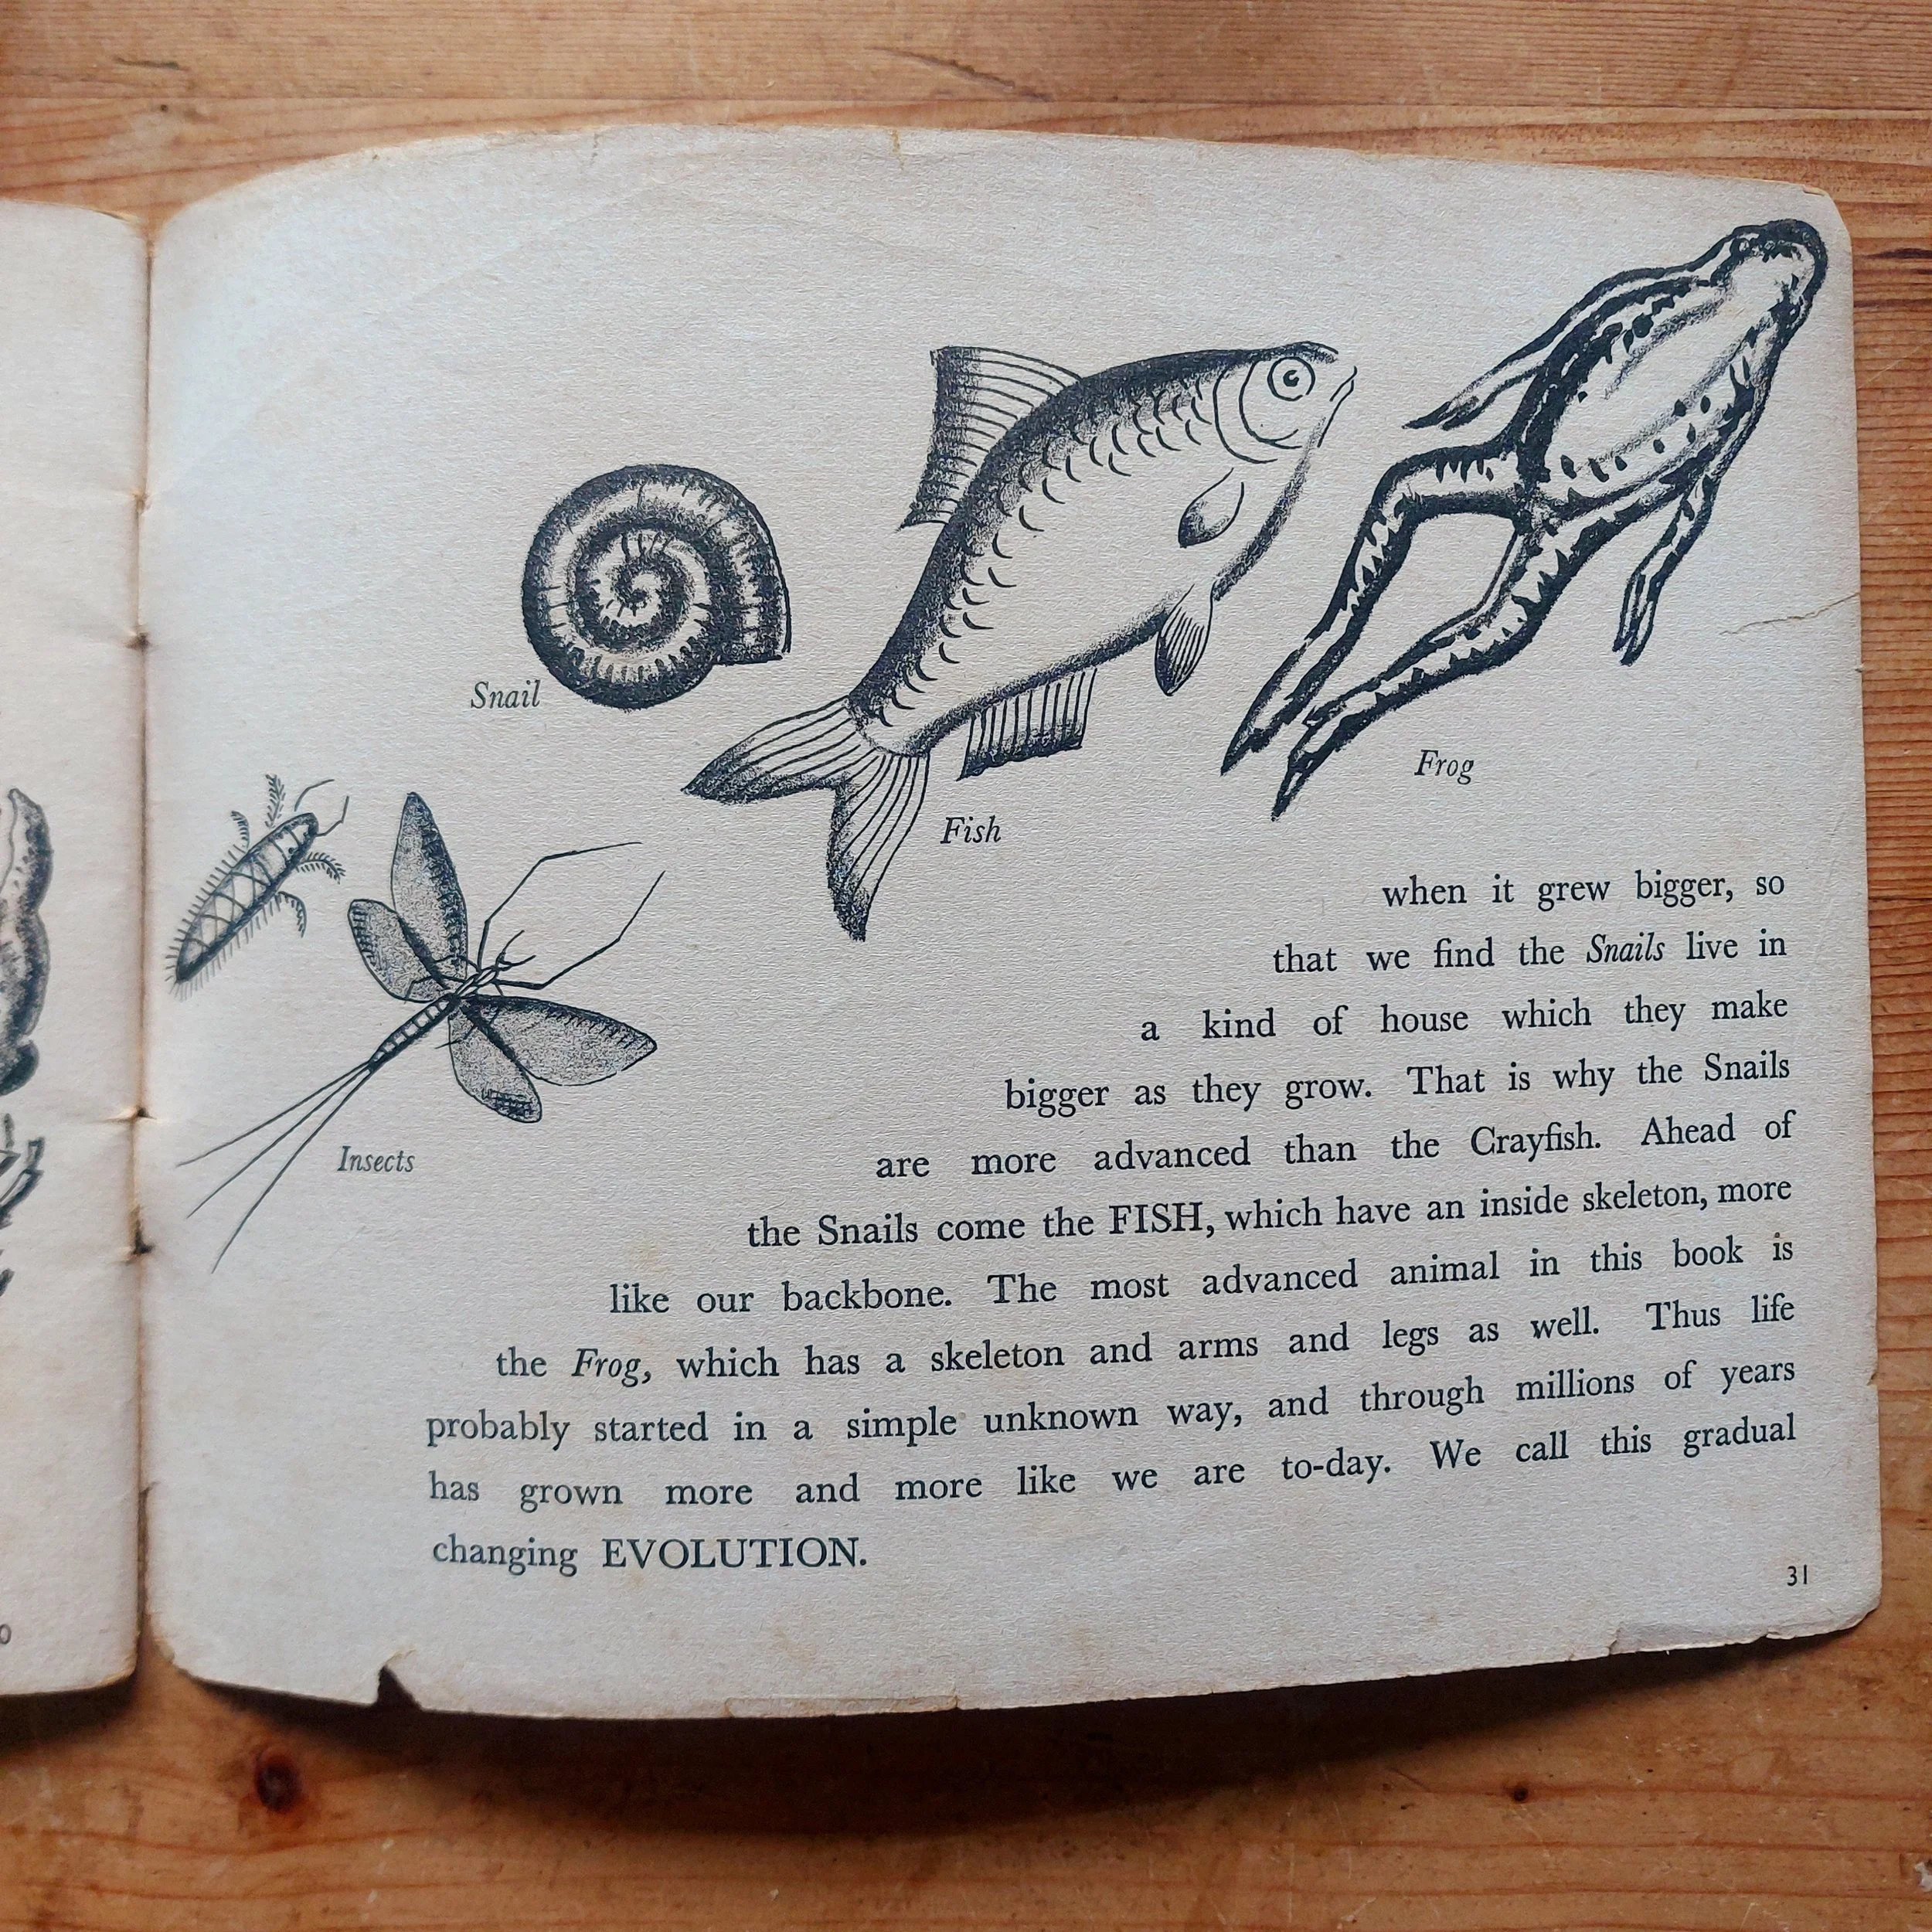 Snail
Fish
Frog
Insects
when it grew bigger, so
that we find the Snails live in
a kind of house which they make
bigger as they grow. That is why the Snails
are more advanced than the Crayfish. Ahead of
the Snails come the FISH, which have an inside skeleton, more
like our backbone. The most advanced animal in this book is
the Frog, which has a skeleton and arms and legs as well. Thus life
probably started in a simple unknown way, and through millions of years
has grown more and more like we are to-day. We call this gradual
changing EVOLUTION.
31